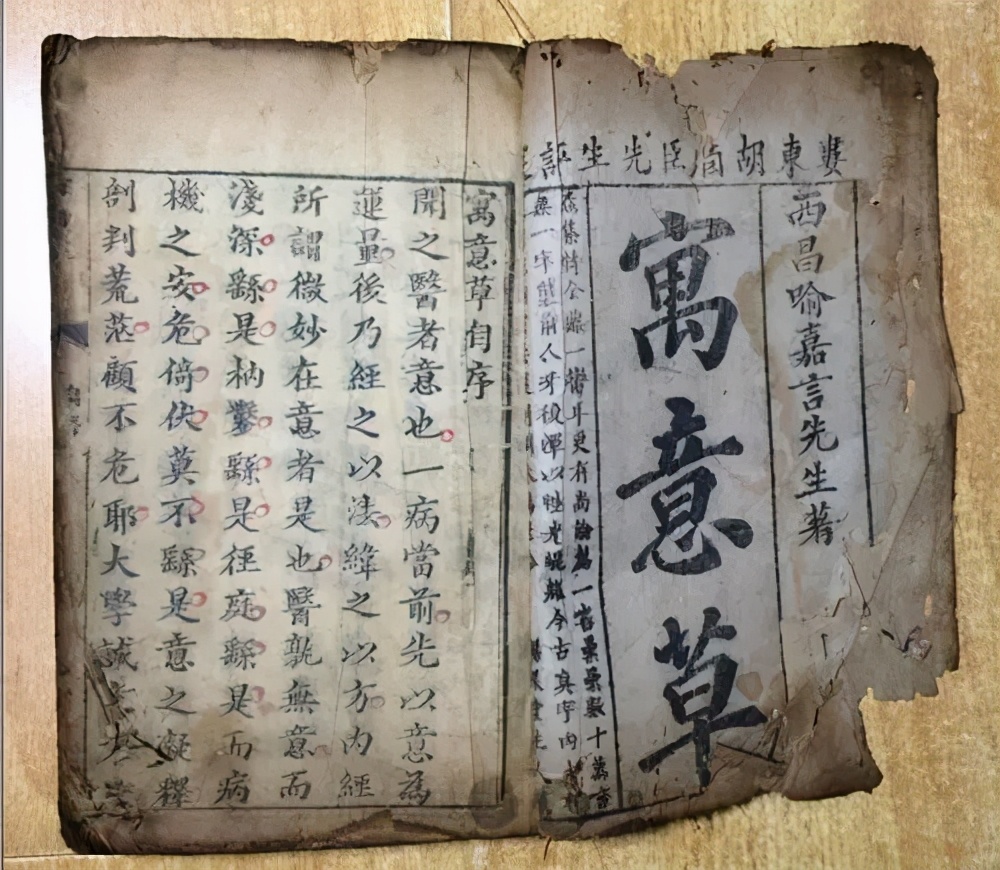 婁東胡卣臣先生評
西昌喻嘉言先生著
寓意草
集特全豹一臠耳更有尚論篇一十萬
無一字前人牙後今古
寓意草自序
聞之醫者意也一病當前先以意為
運量後乃經之以法緯之以方內經
所謂微妙在意者是也醫孰無意而
淺深繇是枘鑿繇是徑庭繇是而病
機之安危倚伏莫不繇是意之凝釋
剖判荒茫顧不危耶大學誠